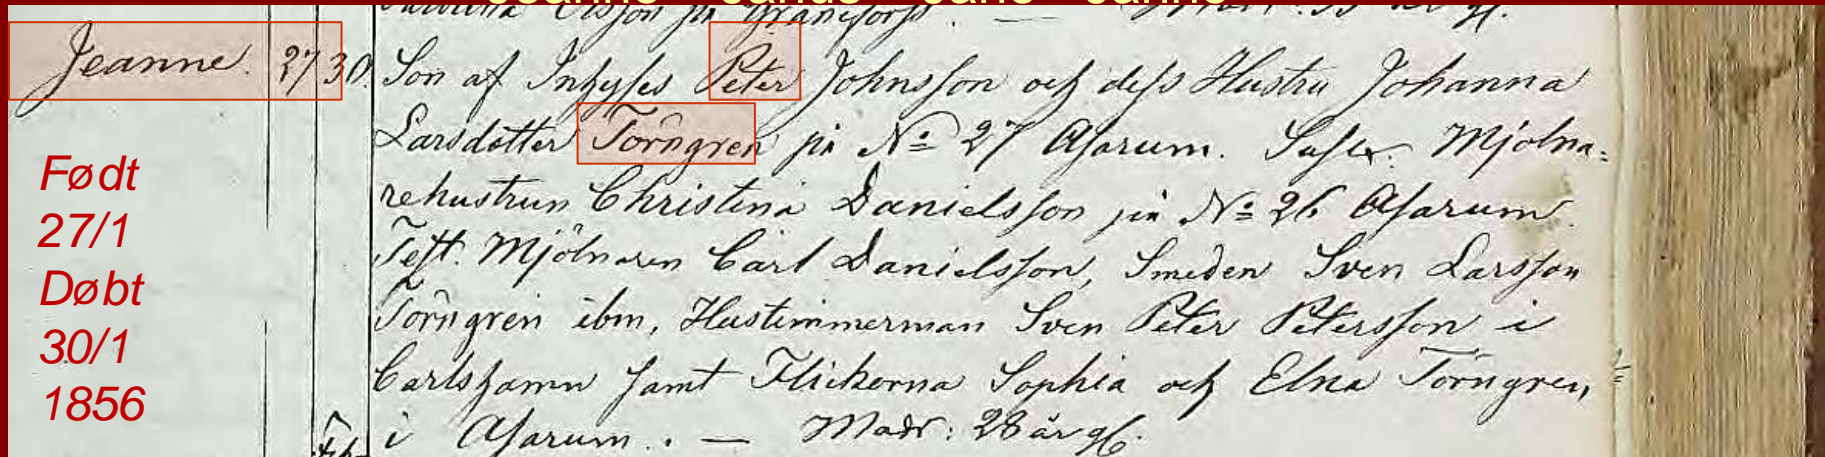 Jeanne Janus Jane Janne
Jeanne. 27 30. Son af Inhyses Peter Johnsson och dess Hustru Johanna
Larsdotter Törngren på No 27 Asarum. Susc. Mjölna=
rehustrun Christina Danielsson på No 26 Asarum.
Test. Mjölnaren Carl Danielsson, Smeden Sven Larsson
Törngren ibm, Hustimmerman Sven Peter Petersson i
Carlshamn samt Flickorna Sophia och Elna Törngren,
i Asarum. — Modr: 28 år gl.
Født
27/1
Døbt
30/1
1856